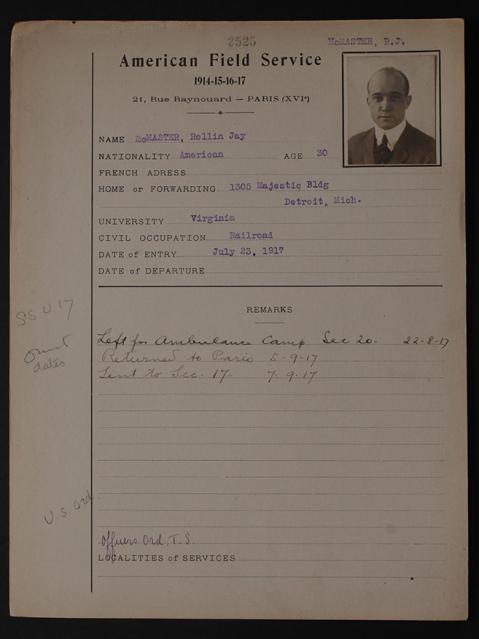 2525
McMASTER, R.J.
American Field Service
1914-15-16-17
21, Rue Raynouard — PARIS (XVIe)
NAME McMASTER, Rollin Jay
NATIONALITY American AGE 30
FRENCH ADRESS
HOME or FORWARDING 1305 Majestic Bldg
Detroit, Mich.
UNIVERSITY Virginia
CIVIL OCCUPATION Railroad
DATE of ENTRY July 23, 1917
DATE of DEPARTURE
REMARKS
SSU 17
Omit
dates
Left for Ambulance Camp Sec 20. 22-8-17
Returned to Paris 5-9-17
Sent to Sec. 17- 7-9-17
U.S. Ord.
Officers Ord. T.S.
LOCALITIES of SERVICES